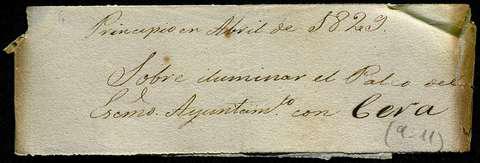 Principio en Abril de 1829.
Sobre iluminar el Palco del
Escmo. Ayuntam.to con Cera
(9-11)